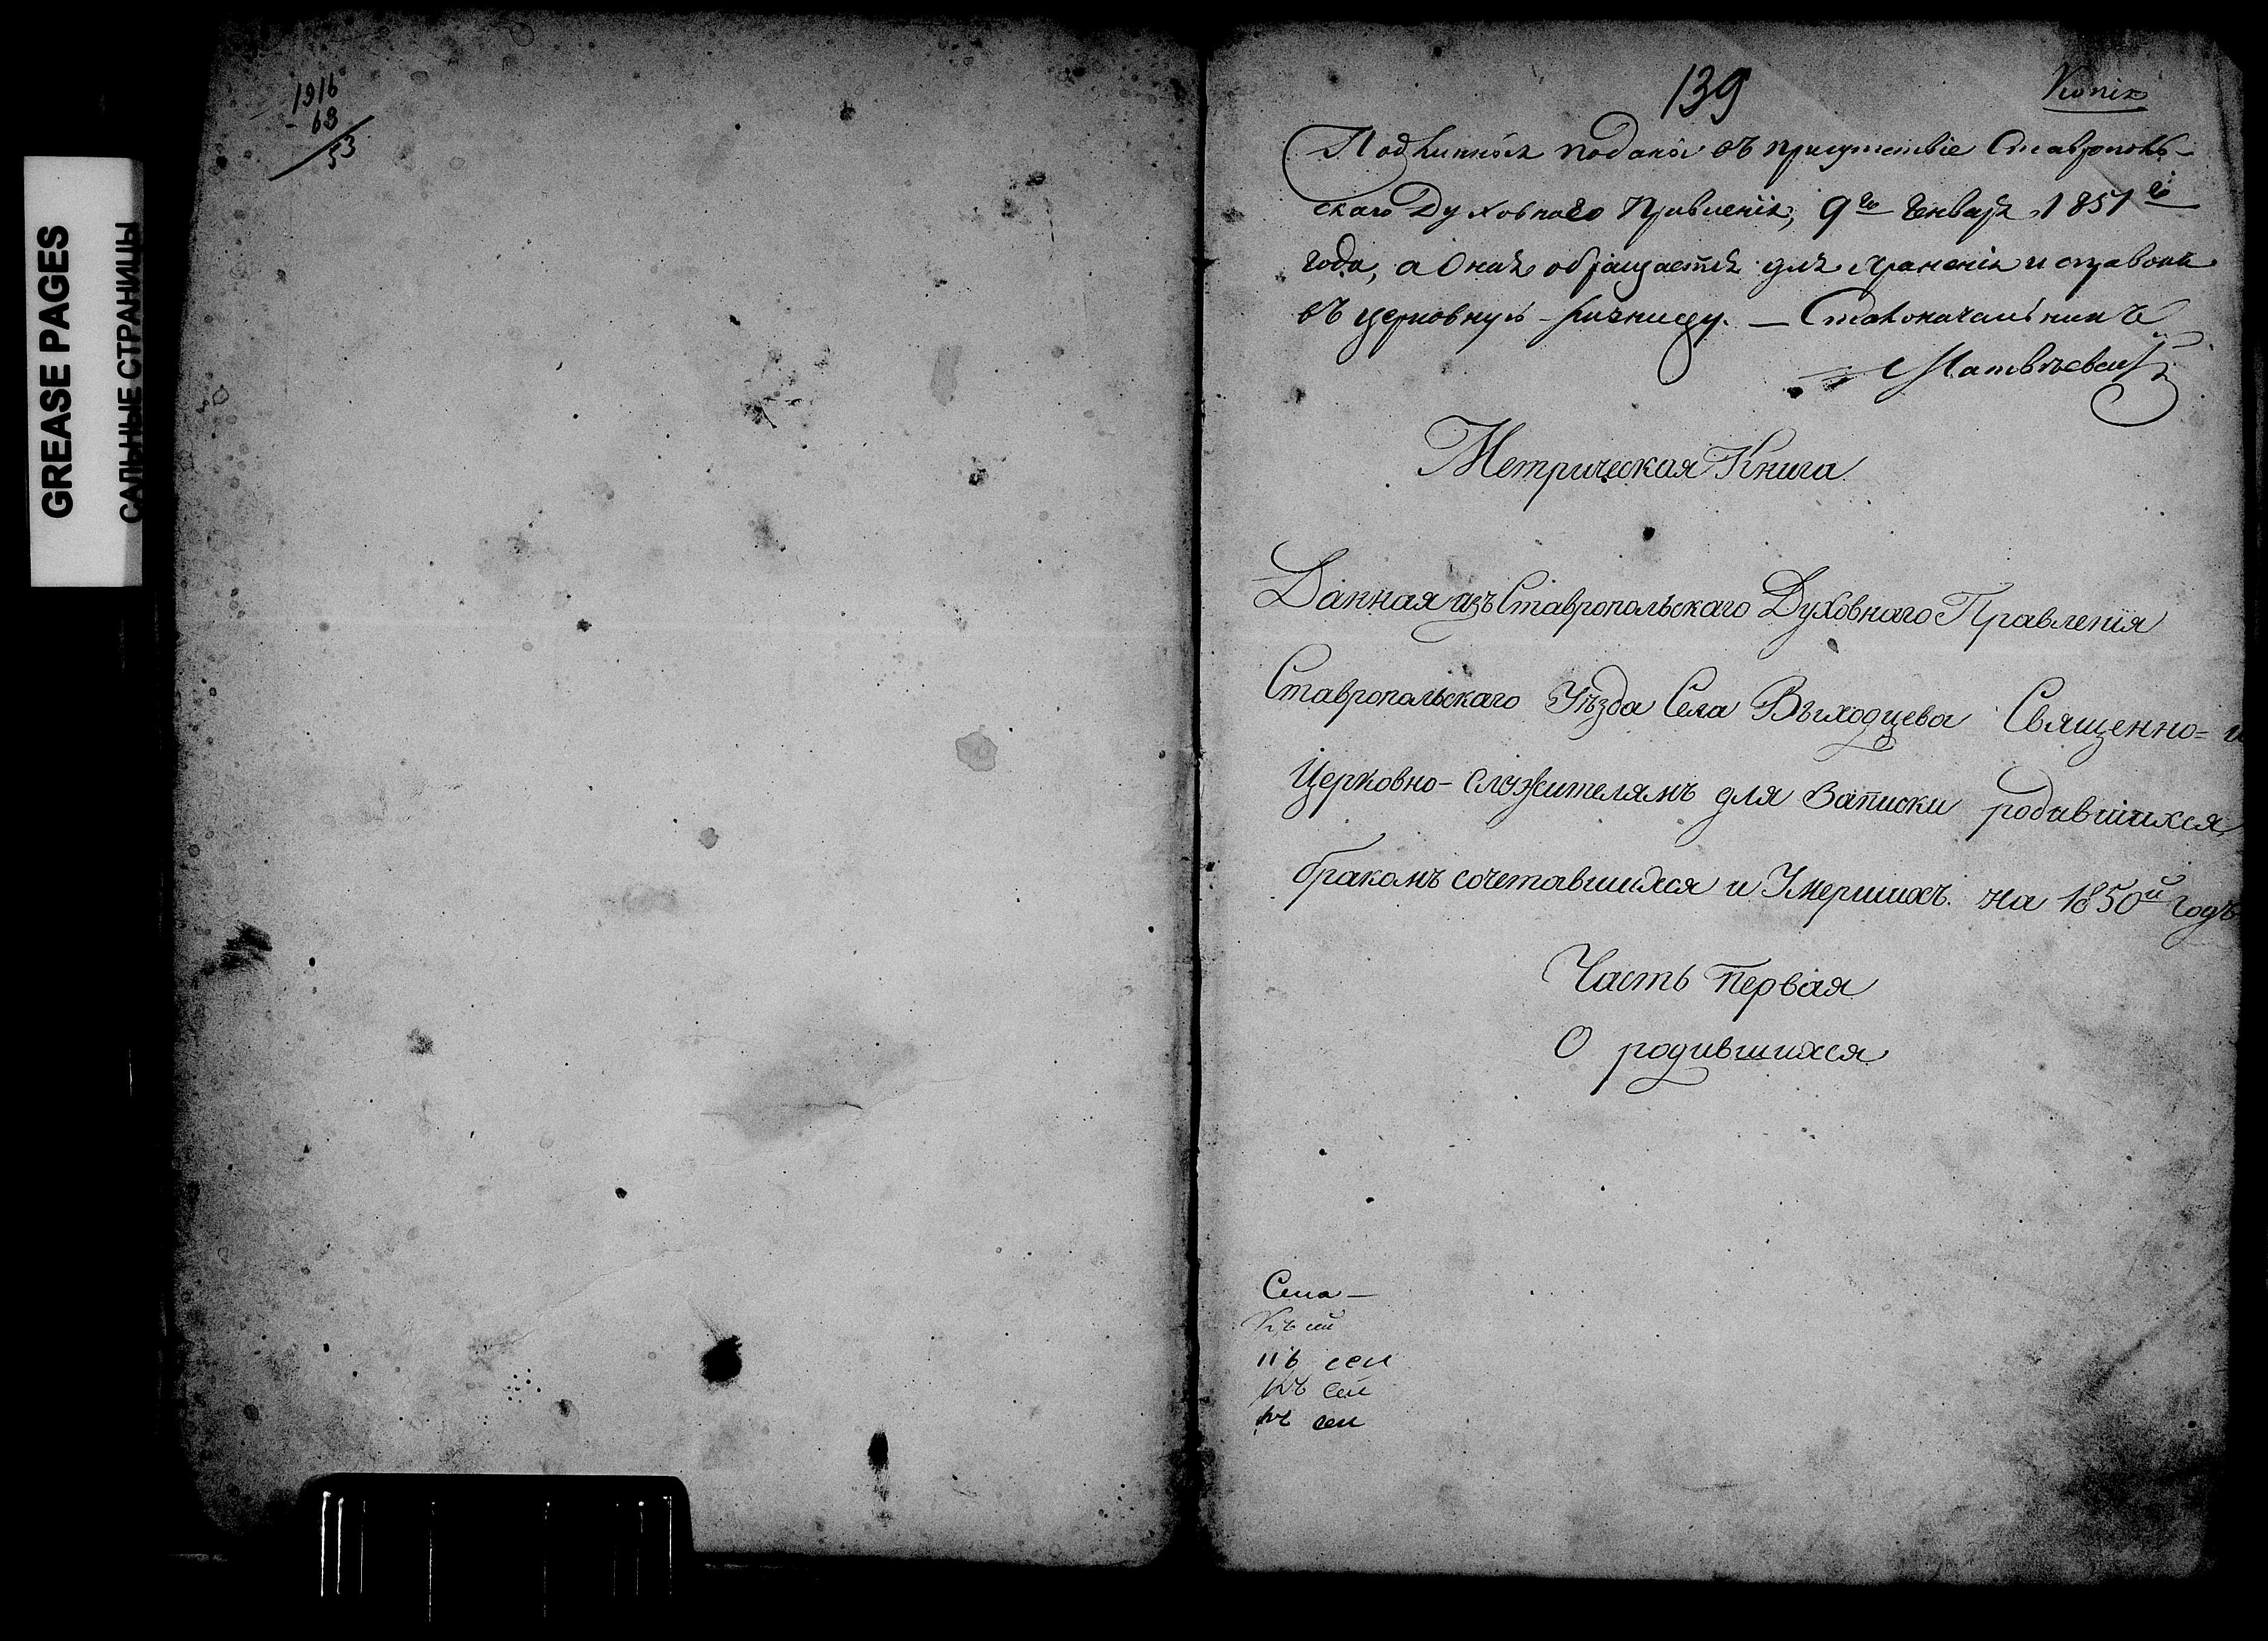 GREASE PAGES
САЛЬНЫЕ СТРАНИЦЫ
1916
- 63
53
139
Копія
Подлинная подана въ присутствіе Ставрополь-
скаго Духовнаго Правленія, 9го Генваря 1851го
года, а Оная обращается для храненія и справокъ
въ церковную ризницу. — Столоначальникъ
Матвѣевскій
Метрическая Книга
Данная изъ Ставропольскаго Духовнаго Правленія
Ставропольскаго Уѣзда Села Выходцева Священно= и
Церковно-служителямъ для Записки родившихся,
бракомъ сочетавшихся и Умершихъ. на 1850й годъ
Часть первая
О родившихся
Сена —
Къ сей
116 сен
къ сей
къ сей